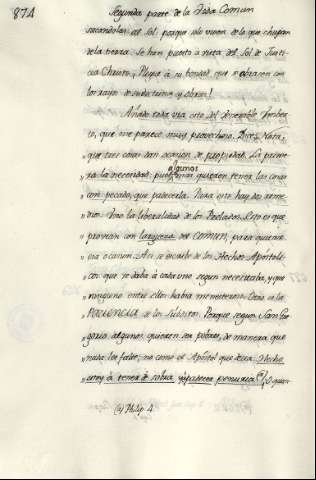 874
Segunda parte de la Vida Comun
mirandolas el Sol, porque solo viven de la que chupan
de la tierra. Se han puesto à vista del Sol de Justi-
cia Christo, Plega à su bondad que se abracen con
los rayos de su doctrina y obras!
Añado toda via otro del Venerable Humber-
to, que me parece muy provechoso. Dice, Nota,
que tres cosas dan ocasion de propiedad. La prime-
ra la necesidad; pues algunos mas quieren tener las cosas
con pecado, que padecerla. Para esto hay dos reme-
dios. Uno la liberalidad de los Prelados. Esto es que
provean con largueza del comun, para quitar
la ocasion. Asi se escribe de los Hechos Apostoli-
cos que se daba à cada uno segun necesitaba, y que
ninguno entre ellos habia menesteroso. Otro es la
Paciencia de los Subditos. Porque segun San Gre-
gorio algunos quieren ser pobres, de manera que
nada les falte; no como el Apóstol que decia Hecho
estoy à tener de sobra, y à padecer penuria (a).
(a) Philip. 4.